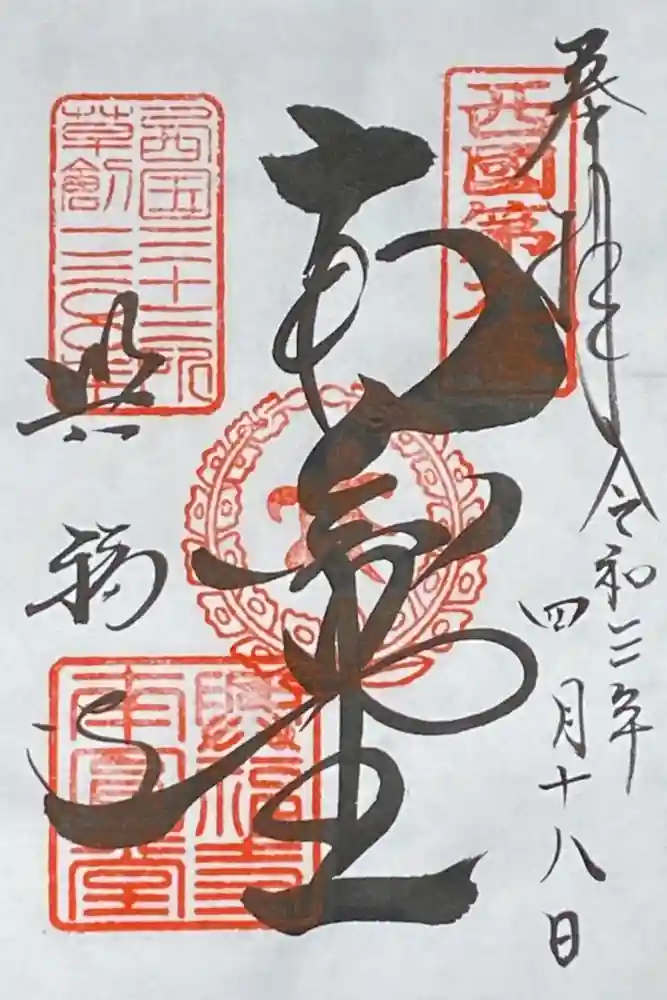 奉拝
令和三年
四月十八日
西國第九
南円堂
西国三十三所
草創一三〇〇年
興福寺
興福寺
南円堂